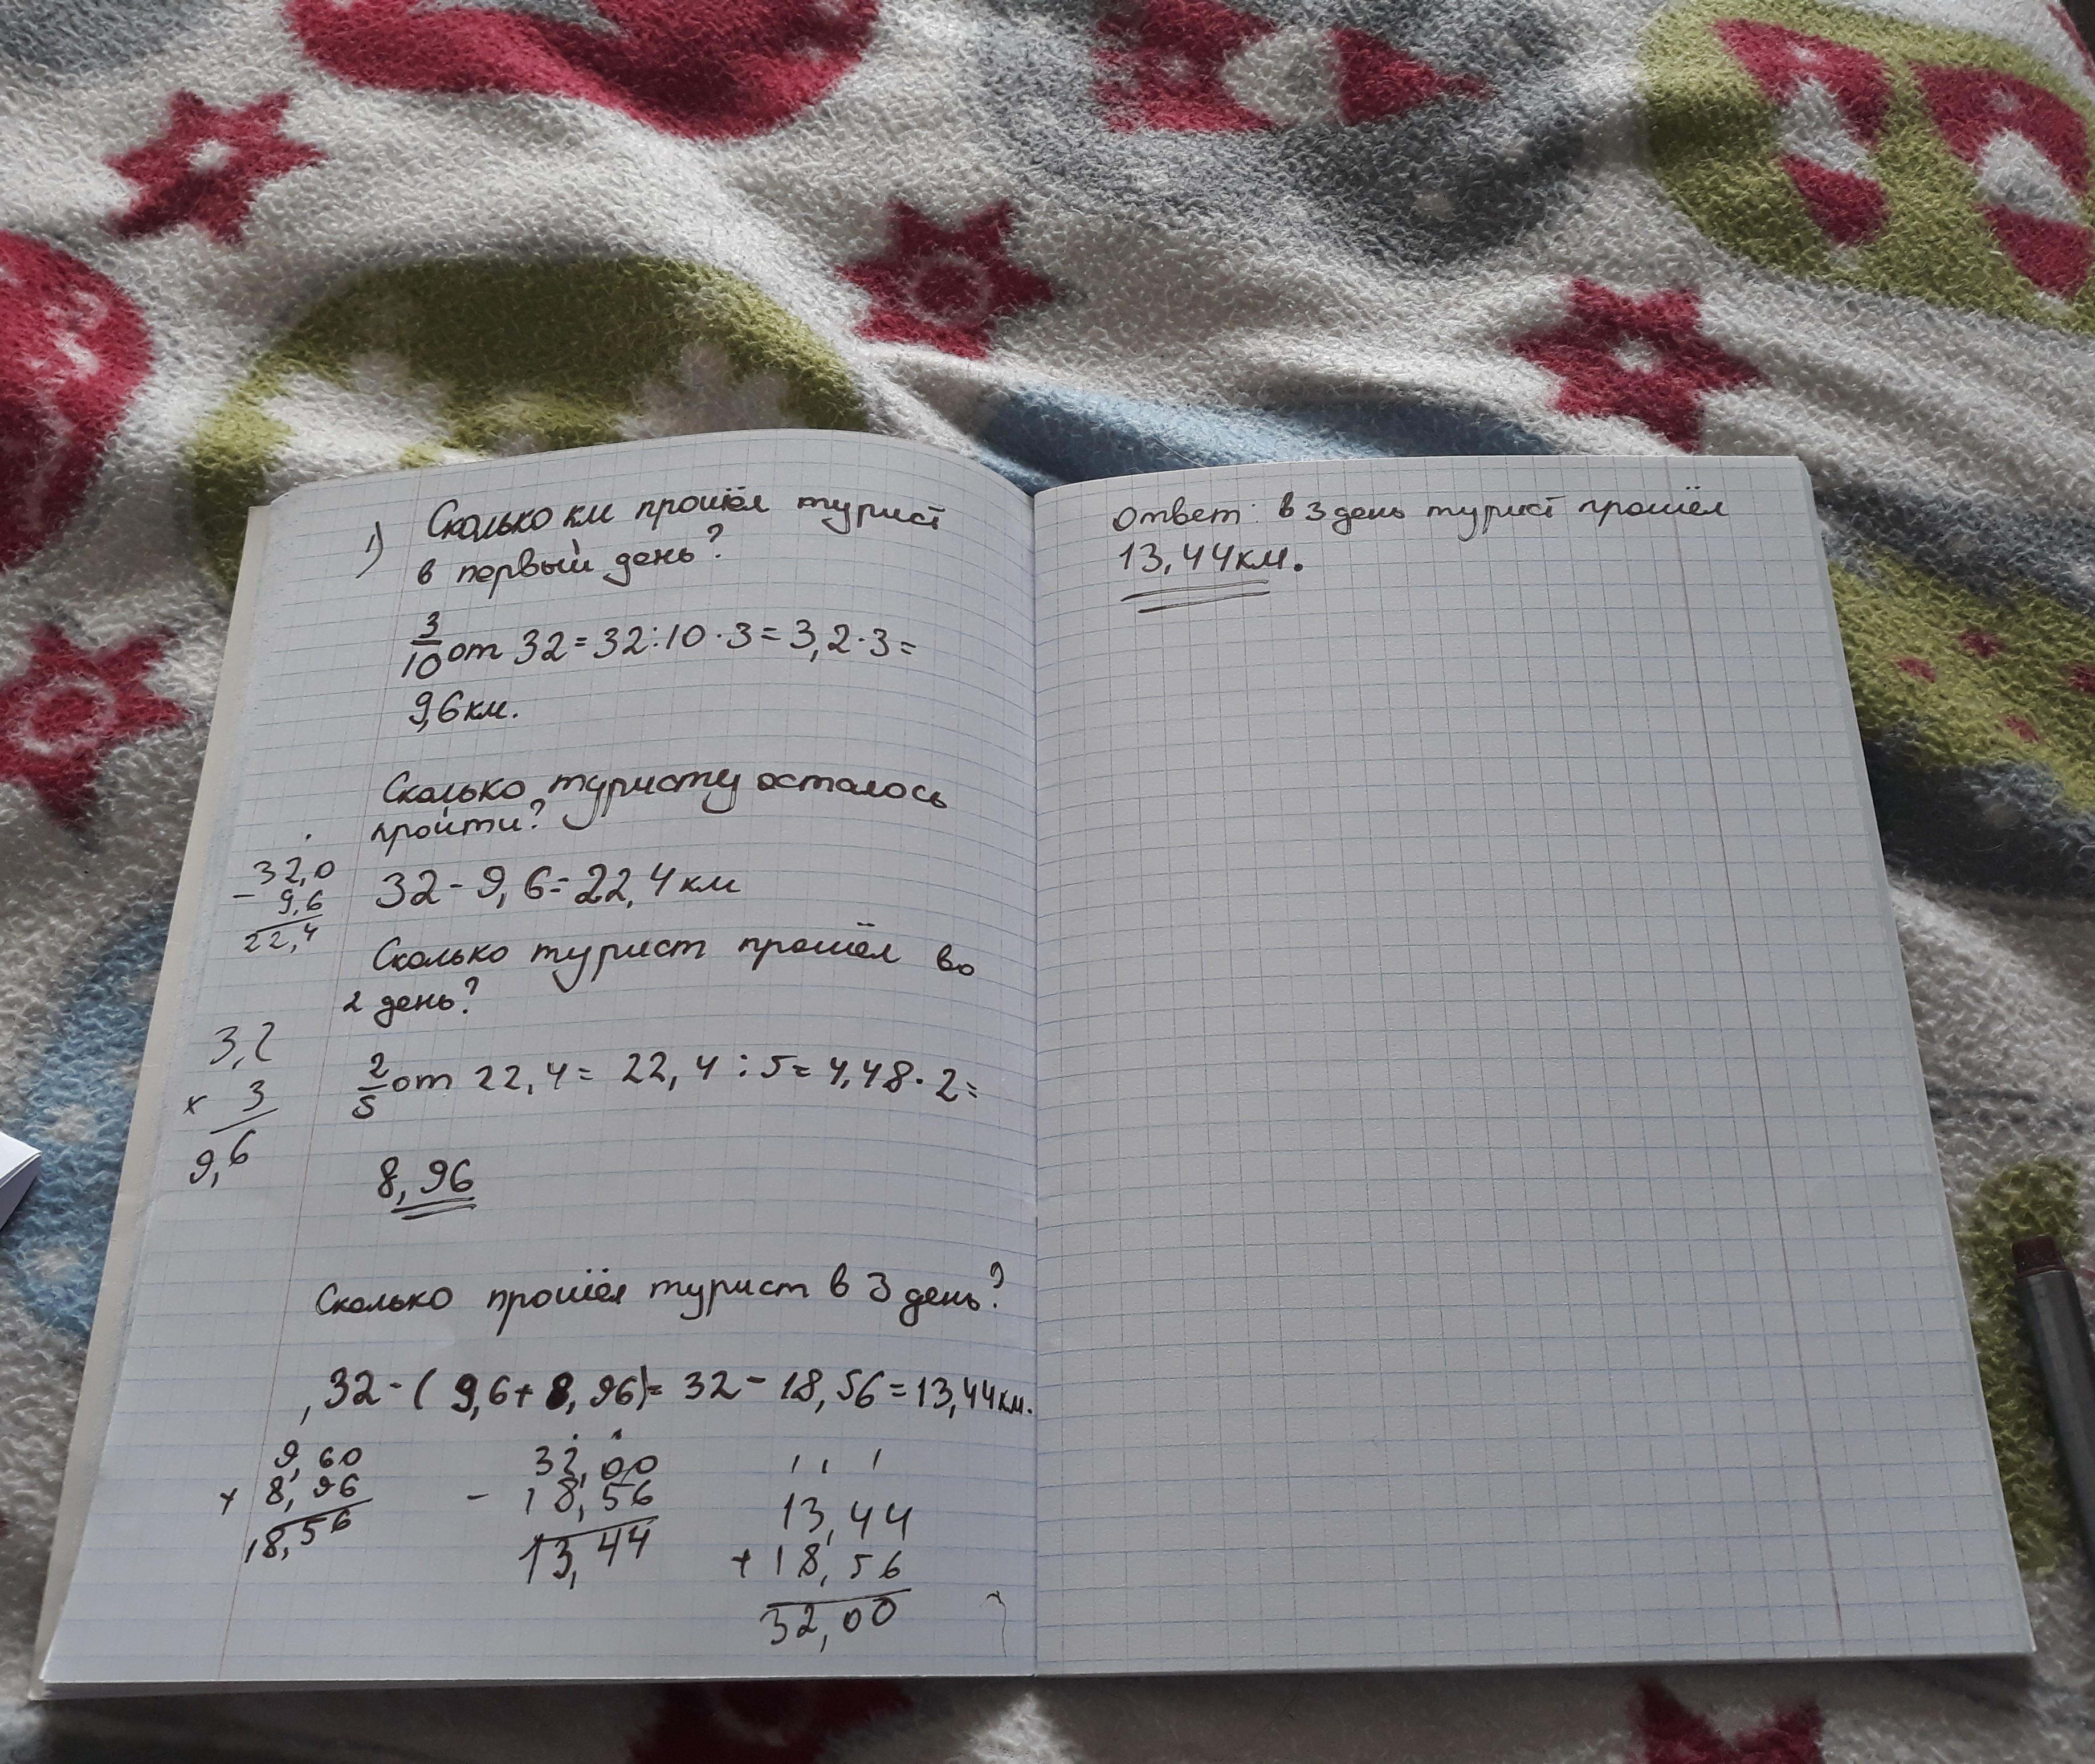 1) Сколько км прошёл турист
в первый день?
3/10 от 32 = 32 : 10 · 3 = 3,2 · 3 =
9,6 км.
Сколько туристу осталось
пройти?
32,0
- 9,6
22,4
32 - 9,6 = 22,4 км
Сколько турист прошёл во
2 день?
3,2
× 3
9,6
2/5 от 22,4 = 22,4 : 5 = 4,48 · 2 =
8,96
Сколько прошёл турист в 3 день?
32 - ( 9,6 + 8,96) = 32 - 18,56 = 13,44 км.
9,60
+ 8,96
18,56
32,00
- 18,56
13,44
13,44
+ 18,56
32,00
Ответ: в 3 день турист прошёл
13,44 км.